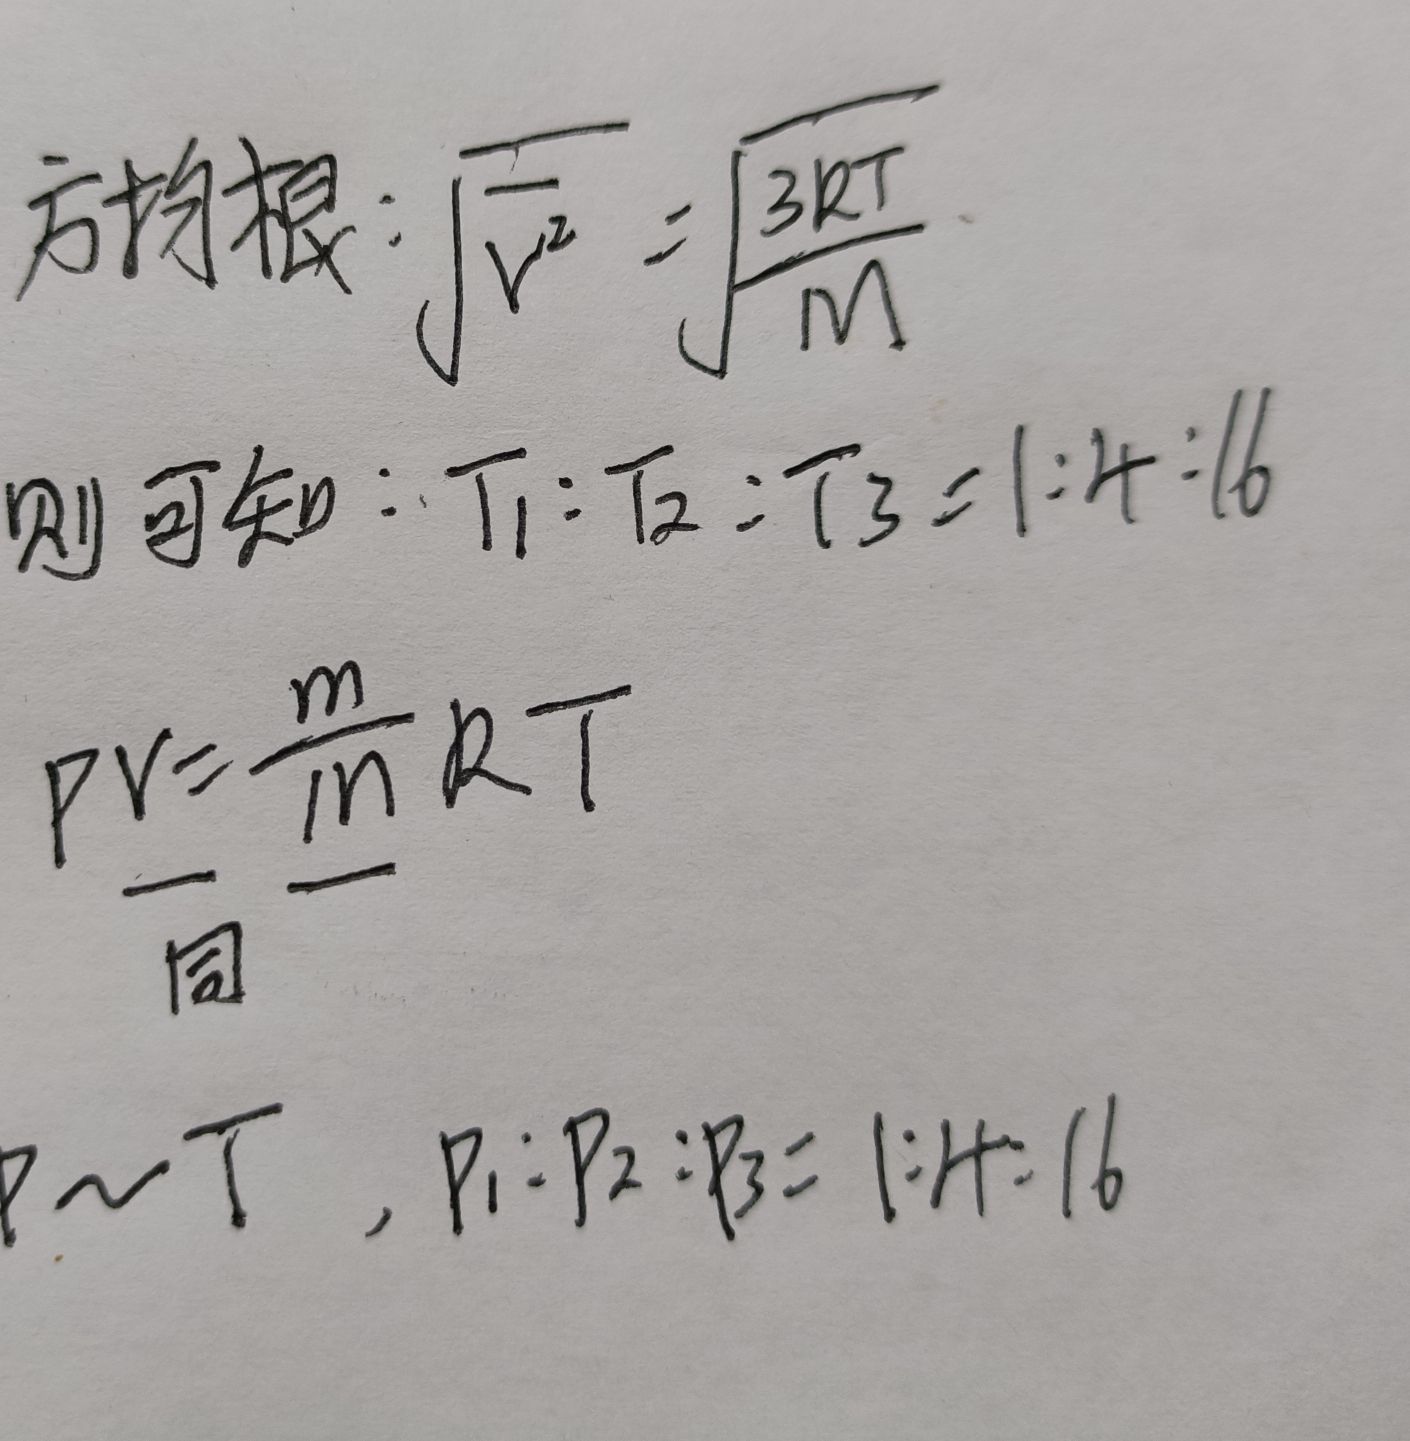 方均根:√(v̅²) = √(3RT/M)
则可知:T₁:T₂:T₃=1:4:16
PV=m/m RT
同
P~T,P₁:P₂:P₃=1:4:16